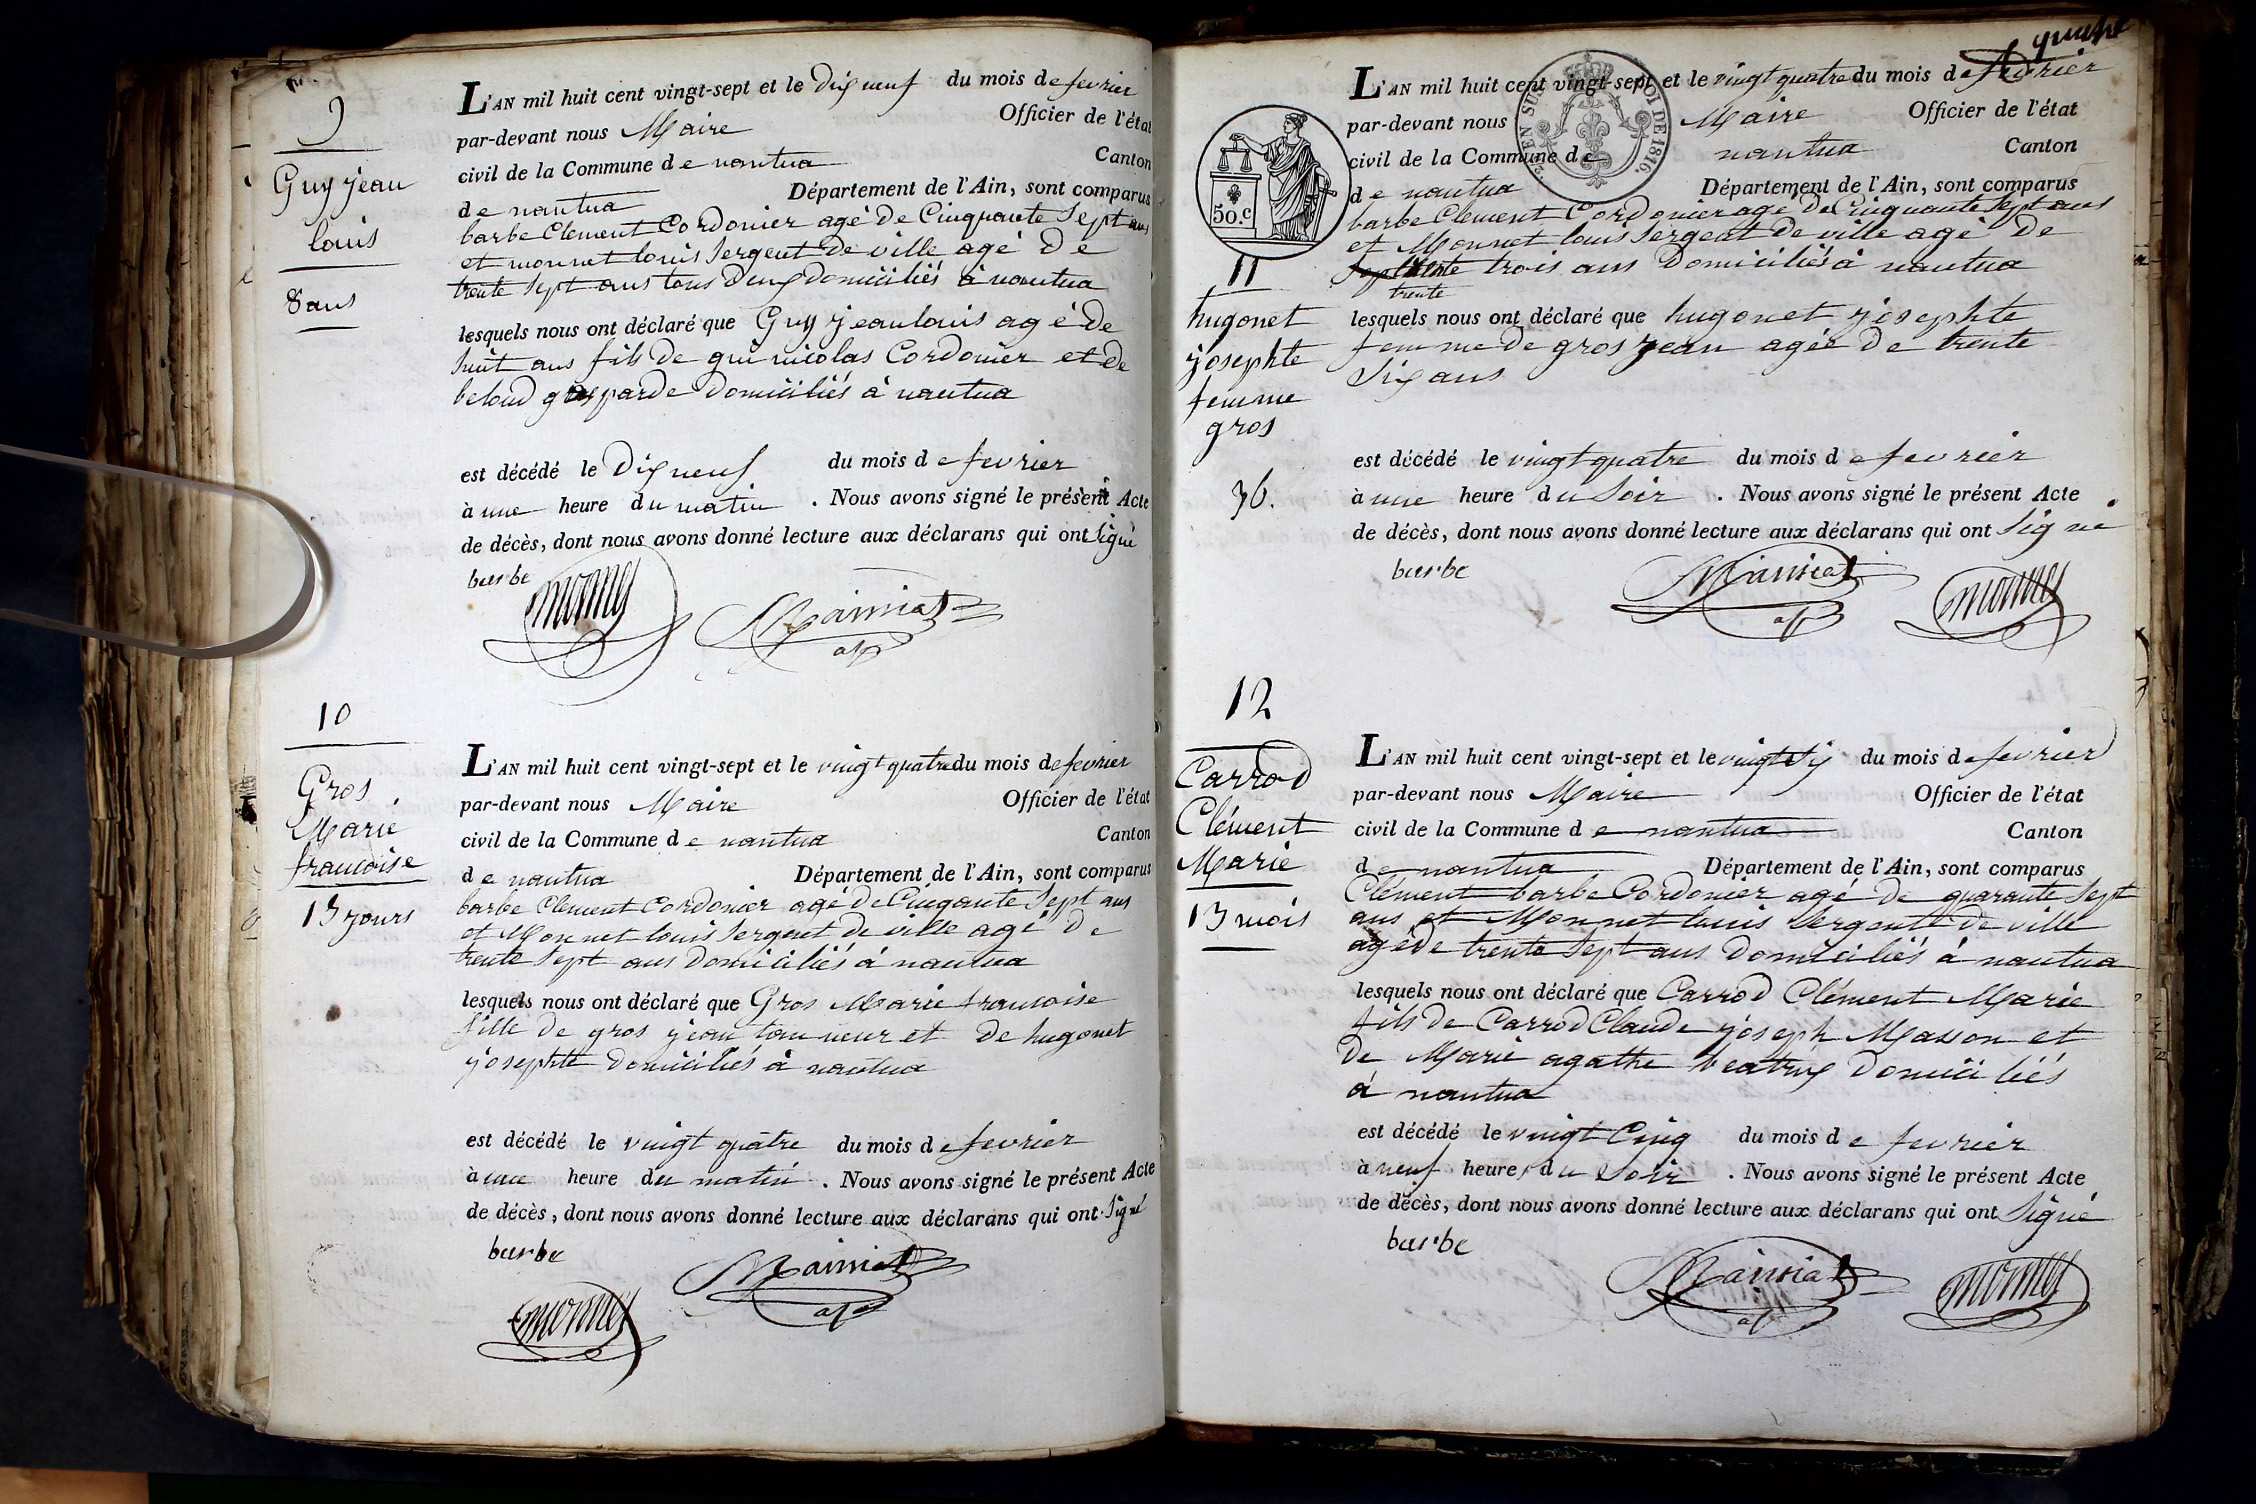 9
Guy jean
louis
8 ans
L'AN mil huit cent vingt-sept et le dix neuf du mois de fevrier
par-devant nous Maire Officier de l'état
civil de la Commune de nantua Canton
de nantua Département de l'Ain, sont comparus
barbe Clement Cordonier agé de Cinquante Sept ans
et monnet louis Sergent de ville agé de
trente Sept ans tous deux domiciliés à nantua
lesquels nous ont déclaré que Guy jean louis agé de
huit ans fils de gui nicolas Cordonier et de
beloud gasparde domiciliés à nantua
est décédé le dix neuf du mois de fevrier
à une heure du matin. Nous avons signé le présent Acte
de décès, dont nous avons donné lecture aux déclarans qui ont Signé
barbe
monnet Mainiat
10
Gros
Marie
francoise
13 jours
L'AN mil huit cent vingt-sept et le vingt quatre du mois de fevrier
par-devant nous Maire Officier de l'état
civil de la Commune de nantua Canton
de nantua Département de l'Ain, sont comparus
barbe Clement Cordonier agé de Cinqante Sept ans
et Monnet louis Sergent de ville agé de
trente Sept ans domiciliés à nantua
lesquels nous ont déclaré que Gros Marie francoise
fille de gros jean tourneur et de hugonet
josephte domiciliés à nantua
est décédé le vingt quatre du mois de fevrier
à une heure du matin. Nous avons signé le présent Acte
de décès, dont nous avons donné lecture aux déclarans qui ont Signé
barbe
monnet Mainiat
50.c
EN SUS
LOI DE 1816.
11
hugonet
josephte
femme
gros
36.
L'AN mil huit cent vingt-sept et le vingt quatre du mois de fevrier
par-devant nous Maire Officier de l'état
civil de la Commune de nantua Canton
de nantua Département de l'Ain, sont comparus
barbe Clement Cordonier agé de Cinquante Sept ans
et Monnet louis Sergeat de ville agé de
trois ans domiciliés à nantua
trente
lesquels nous ont déclaré que hugonet josephte
femme de gros jean agée de trente
Six ans
est décédé le vingt quatre du mois de fevrier
à une heure du Soir. Nous avons signé le présent Acte
de décès, dont nous avons donné lecture aux déclarans qui ont Signé
barbe Mainiat monnet
12
Carrod
Clément
Marie
13 mois
L'AN mil huit cent vingt-sept et le vingt Six du mois de fevrier
par-devant nous Maire Officier de l'état
civil de la Commune de nantua Canton
de nantua Département de l'Ain, sont comparus
Clément barbe Cordonier agé de quarante Sept
ans et Monnet louis Sergent de ville
agé de trente Sept ans domiciliés à nantua
lesquels nous ont déclaré que Carrod Clément Marie
fils de Carrod Claude joseph Masson et
de Marie agathe beatrix domiciliés
à nantua
est décédé le vingt Cinq du mois de fevrier
à neuf heures du Soir. Nous avons signé le présent Acte
de décès, dont nous avons donné lecture aux déclarans qui ont Signé
barbe
Mainiat monnet